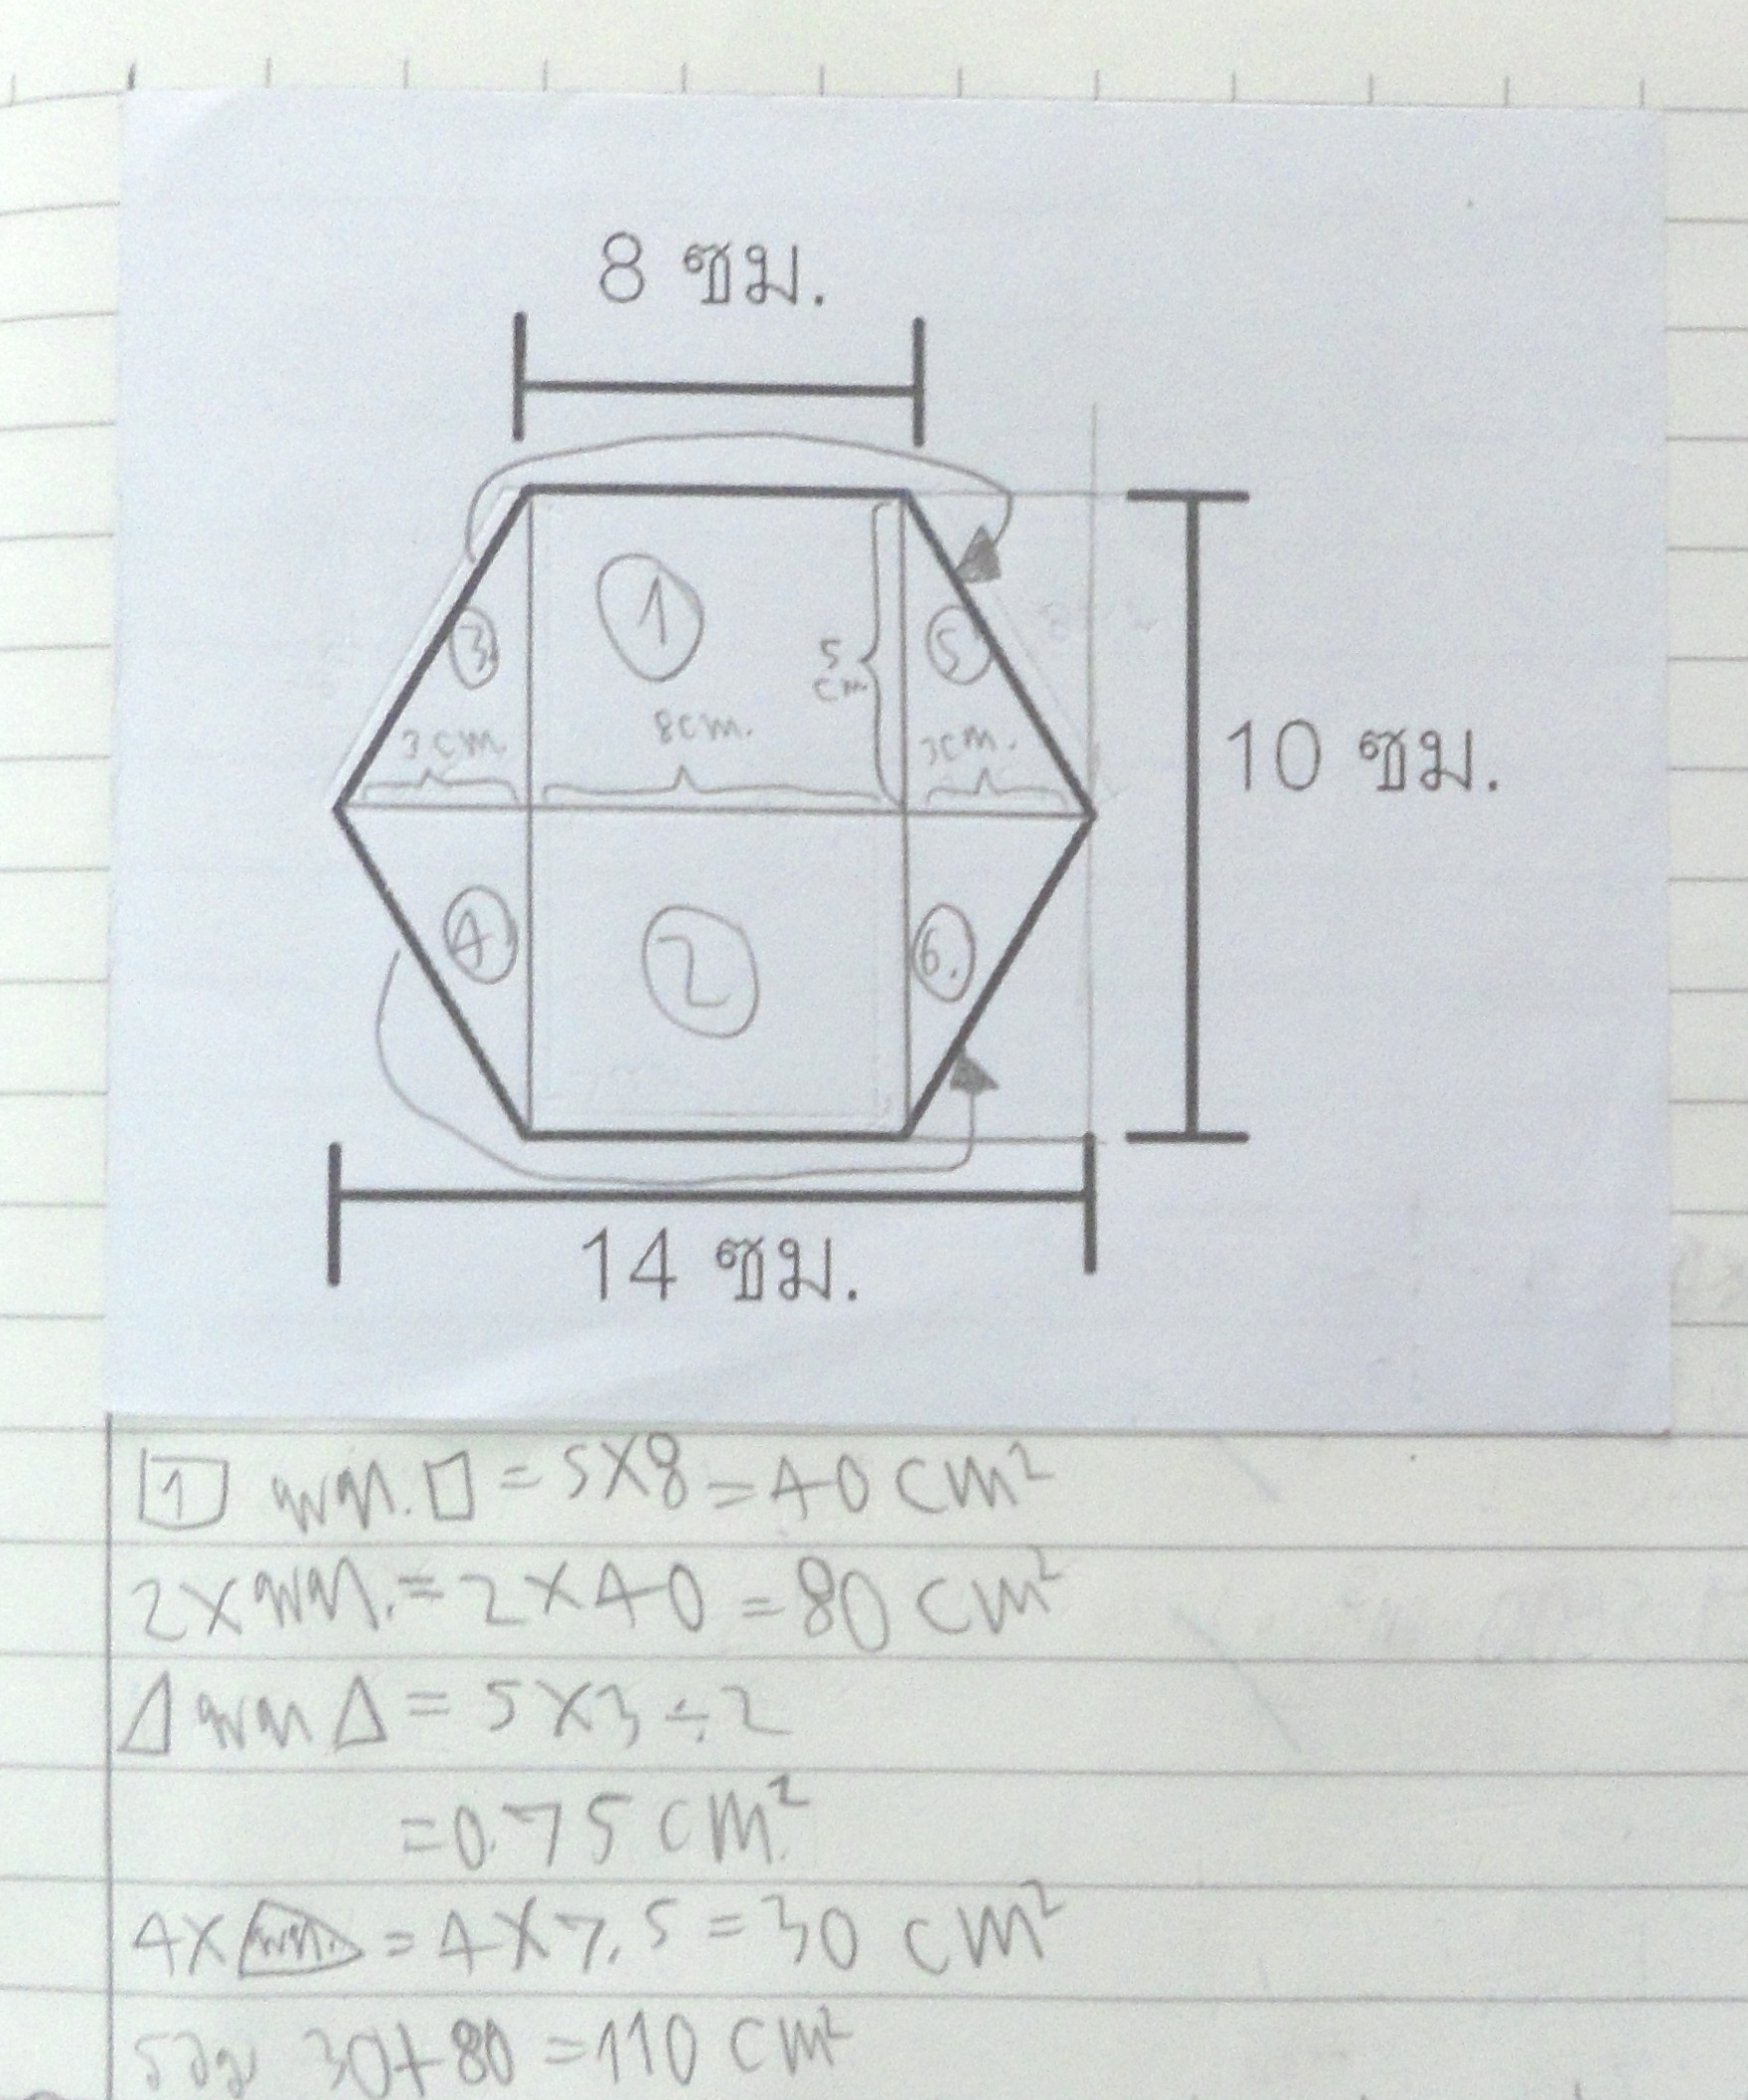 8 ซม.
1
3.
5
5 cm.
3 cm.
8 cm.
3 cm.
10 ซม.
4
2
6.
14 ซม.
1 พท. □ = 5×8 = 40 cm²
2× พท. = 2×40 = 80 cm²
△ พท △ = 5×3÷2
= 0.75 cm²
4× พท. = 4×7.5 = 30 cm²
รวม 30+80 = 110 cm²